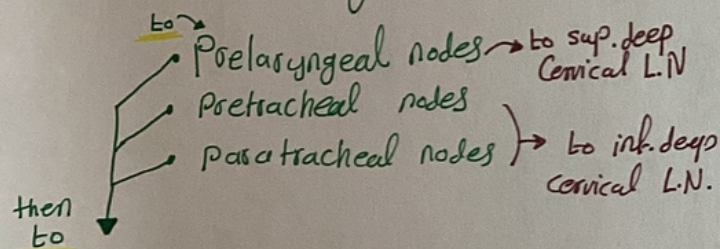 to
Prelaryngeal nodes → to sup. deep
Cervical L.N
Pretracheal nodes
paratracheal nodes → to inf. deep
cervical L.N.
then
to